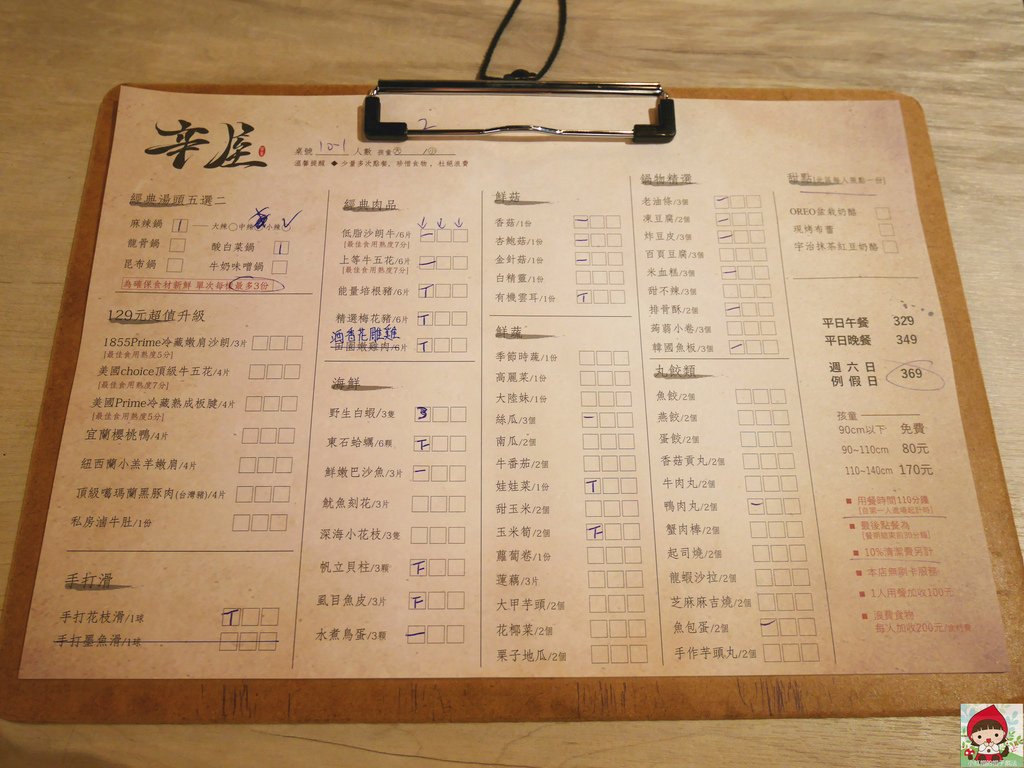 辛屋
桌號 10-1 人數 2 孩童
溫馨提醒 ◆ 少量多次點餐，珍惜食物，杜絕浪費
經典湯頭五選二
麻辣鍋 大辣 中辣 小辣
龍骨鍋 酸白菜鍋
昆布鍋 牛奶味噌鍋
為確保食材新鮮 單次每樣最多3份
129元超值升級
1855Prime冷藏嫩肩沙朗/3片
[最佳食用熟度5分]
美國choice頂級牛五花/4片
[最佳食用熟度7分]
美國Prime冷藏熟成板腱/4片
[最佳食用熟度5分]
宜蘭櫻桃鴨/4片
紐西蘭小羔羊嫩肩/4片
頂級噶瑪蘭黑豚肉(台灣豬)/4片
私房滷牛肚/1份
手打滑
手打花枝滑/1球 T
手打墨魚滑/1球
經典肉品
低脂沙朗牛/6片 一
[最佳食用熟度7分]
上等牛五花/6片 一
[最佳食用熟度7分]
能量培根豬/6片 T
精選梅花豬/6片 T
酒香花雕雞
田園嫩雞肉/6片 T
海鮮
野生白蝦/3隻 3
東石蛤蠣/6顆 下
鮮嫩巴沙魚/3片 一
魷魚刻花/3片
深海小花枝/3隻
帆立貝柱/3顆 下
虱目魚皮/3片 下
水煮鳥蛋/3顆 一
鮮菇
香菇/1份 一
杏鮑菇/1份 一
金針菇/1份 一
白精靈/1份
有機雲耳/1份 T
鮮蔬
季節時蔬/1份
高麗菜/1份
大陸妹/1份
絲瓜/3個 一
南瓜/2個
牛番茄/2個
娃娃菜/1份 T
甜玉米/2個
玉米筍/2個 下
蘿蔔卷/1份
蓮藕/3片
大甲芋頭/2個
花椰菜/2個
栗子地瓜/2個
鍋物精選
老油條/3個 一
凍豆腐/2個
炸豆皮/3個 一
百頁豆腐/3個
米血糕/3個 一
甜不辣/3個
排骨酥/2個 一
蒟蒻小卷/3個
韓國魚板/3個 一
丸餃類
魚餃/2個
燕餃/2個
蛋餃/2個
香菇貢丸/2個
牛肉丸/2個
鴨肉丸/2個 一
蟹肉棒/2個
起司燒/2個
龍蝦沙拉/2個
芝麻麻吉燒/2個
魚包蛋/2個 一
手作芋頭丸/2個
甜點
OREO盆栽奶酪
現烤布蕾
宇治抹茶紅豆奶酪
平日午餐 329
平日晚餐 349
週六日
例假日 369
孩童
90cm以下 免費
90~110cm 80元
110~140cm 170元
■ 用餐時間110分鐘
[自第一人進場起計時]
■ 最後點餐為
[餐期結束前30分鐘]
■ 10%清潔費另計
■ 本店無刷卡服務
■ 1人用餐加收100元
■ 浪費食物
每人加收200元